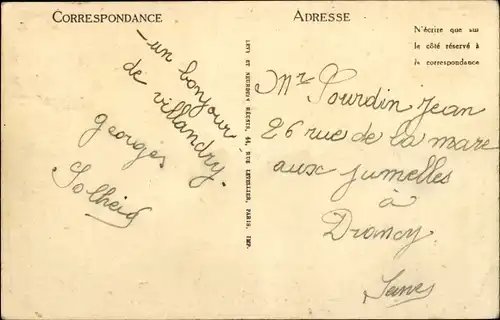 CORRESPONDANCE
- un bonjour
de villandry.
georges
ADRESSE
N'écrire que sur
le côté réservé à
la correspondance
LEVY ET NEURDEIN RÉUNIS, 44, RUE LETELLIER, PARIS, IMP.
Mr Sourdin Jean
26 rue de la mare
aux jumelles
à
Drancy
Seine